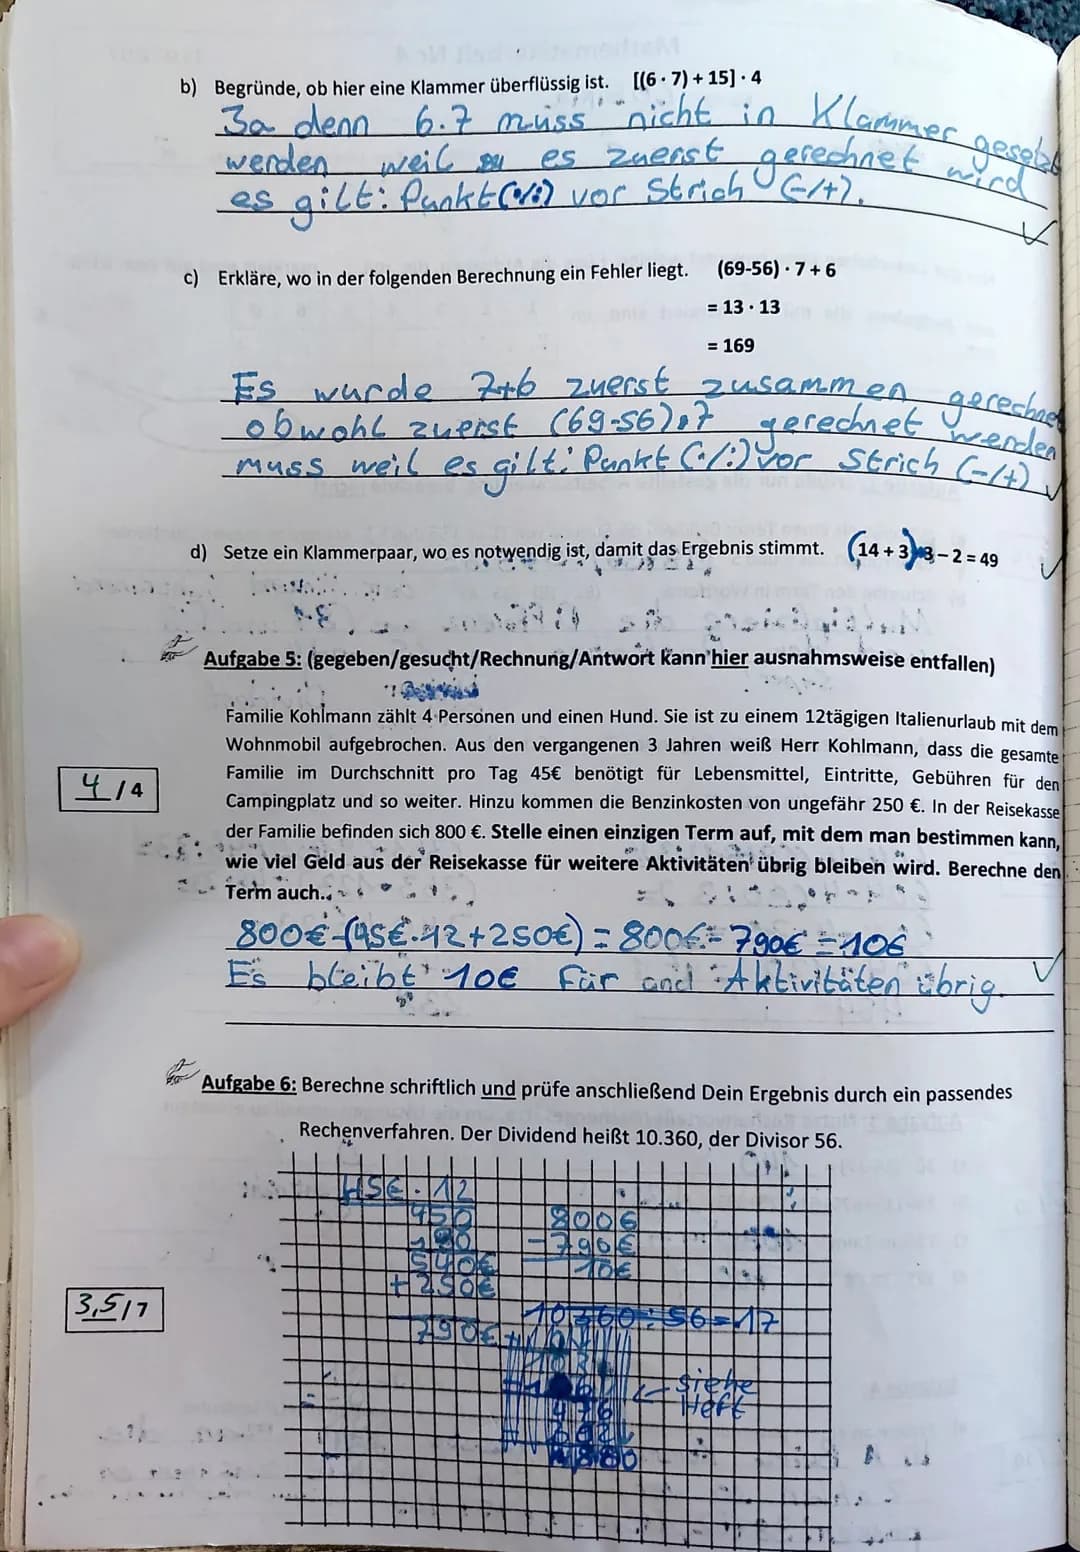 b) Begründe, ob hier eine Klammer überflüssig ist. [(6 · 7) + 15] · 4
Ja denn 6·7 muss nicht in Klammer gesetzt
werden weil es zuerst gerechnet wird
es gilt: Punkt(·/:) vor Strich (-/+).
c) Erkläre, wo in der folgenden Berechnung ein Fehler liegt. (69-56) · 7 + 6
= 13 · 13
= 169
Es wurde 7+6 zuerst zusammen gerechnet
obwohl zuerst (69-56)·7 gerechnet werden
muss weil es gilt: Punkt (·/:) vor Strich (-/+)
d) Setze ein Klammerpaar, wo es notwendig ist, damit das Ergebnis stimmt. (14 + 3)·3 – 2 = 49
Aufgabe 5: (gegeben/gesucht/Rechnung/Antwort kann hier ausnahmsweise entfallen)
Familie Kohlmann zählt 4 Personen und einen Hund. Sie ist zu einem 12tägigen Italienurlaub mit dem
Wohnmobil aufgebrochen. Aus den vergangenen 3 Jahren weiß Herr Kohlmann, dass die gesamte
4 /4 Familie im Durchschnitt pro Tag 45€ benötigt für Lebensmittel, Eintritte, Gebühren für den
Campingplatz und so weiter. Hinzu kommen die Benzinkosten von ungefähr 250 €. In der Reisekasse
der Familie befinden sich 800 €. Stelle einen einzigen Term auf, mit dem man bestimmen kann,
wie viel Geld aus der Reisekasse für weitere Aktivitäten übrig bleiben wird. Berechne den
Term auch.
800€-(45€·12+250€) = 800€-790€ = 10€
Es bleibt 10€ für Aktivitäten übrig.
Aufgabe 6: Berechne schriftlich und prüfe anschließend Dein Ergebnis durch ein passendes
Rechenverfahren. Der Dividend heißt 10.360, der Divisor 56.
45€·12
450 800€
90 -790€
540€ 10€
+250€
3,5/7 790€ 10360:56=17
← siehe
Heft